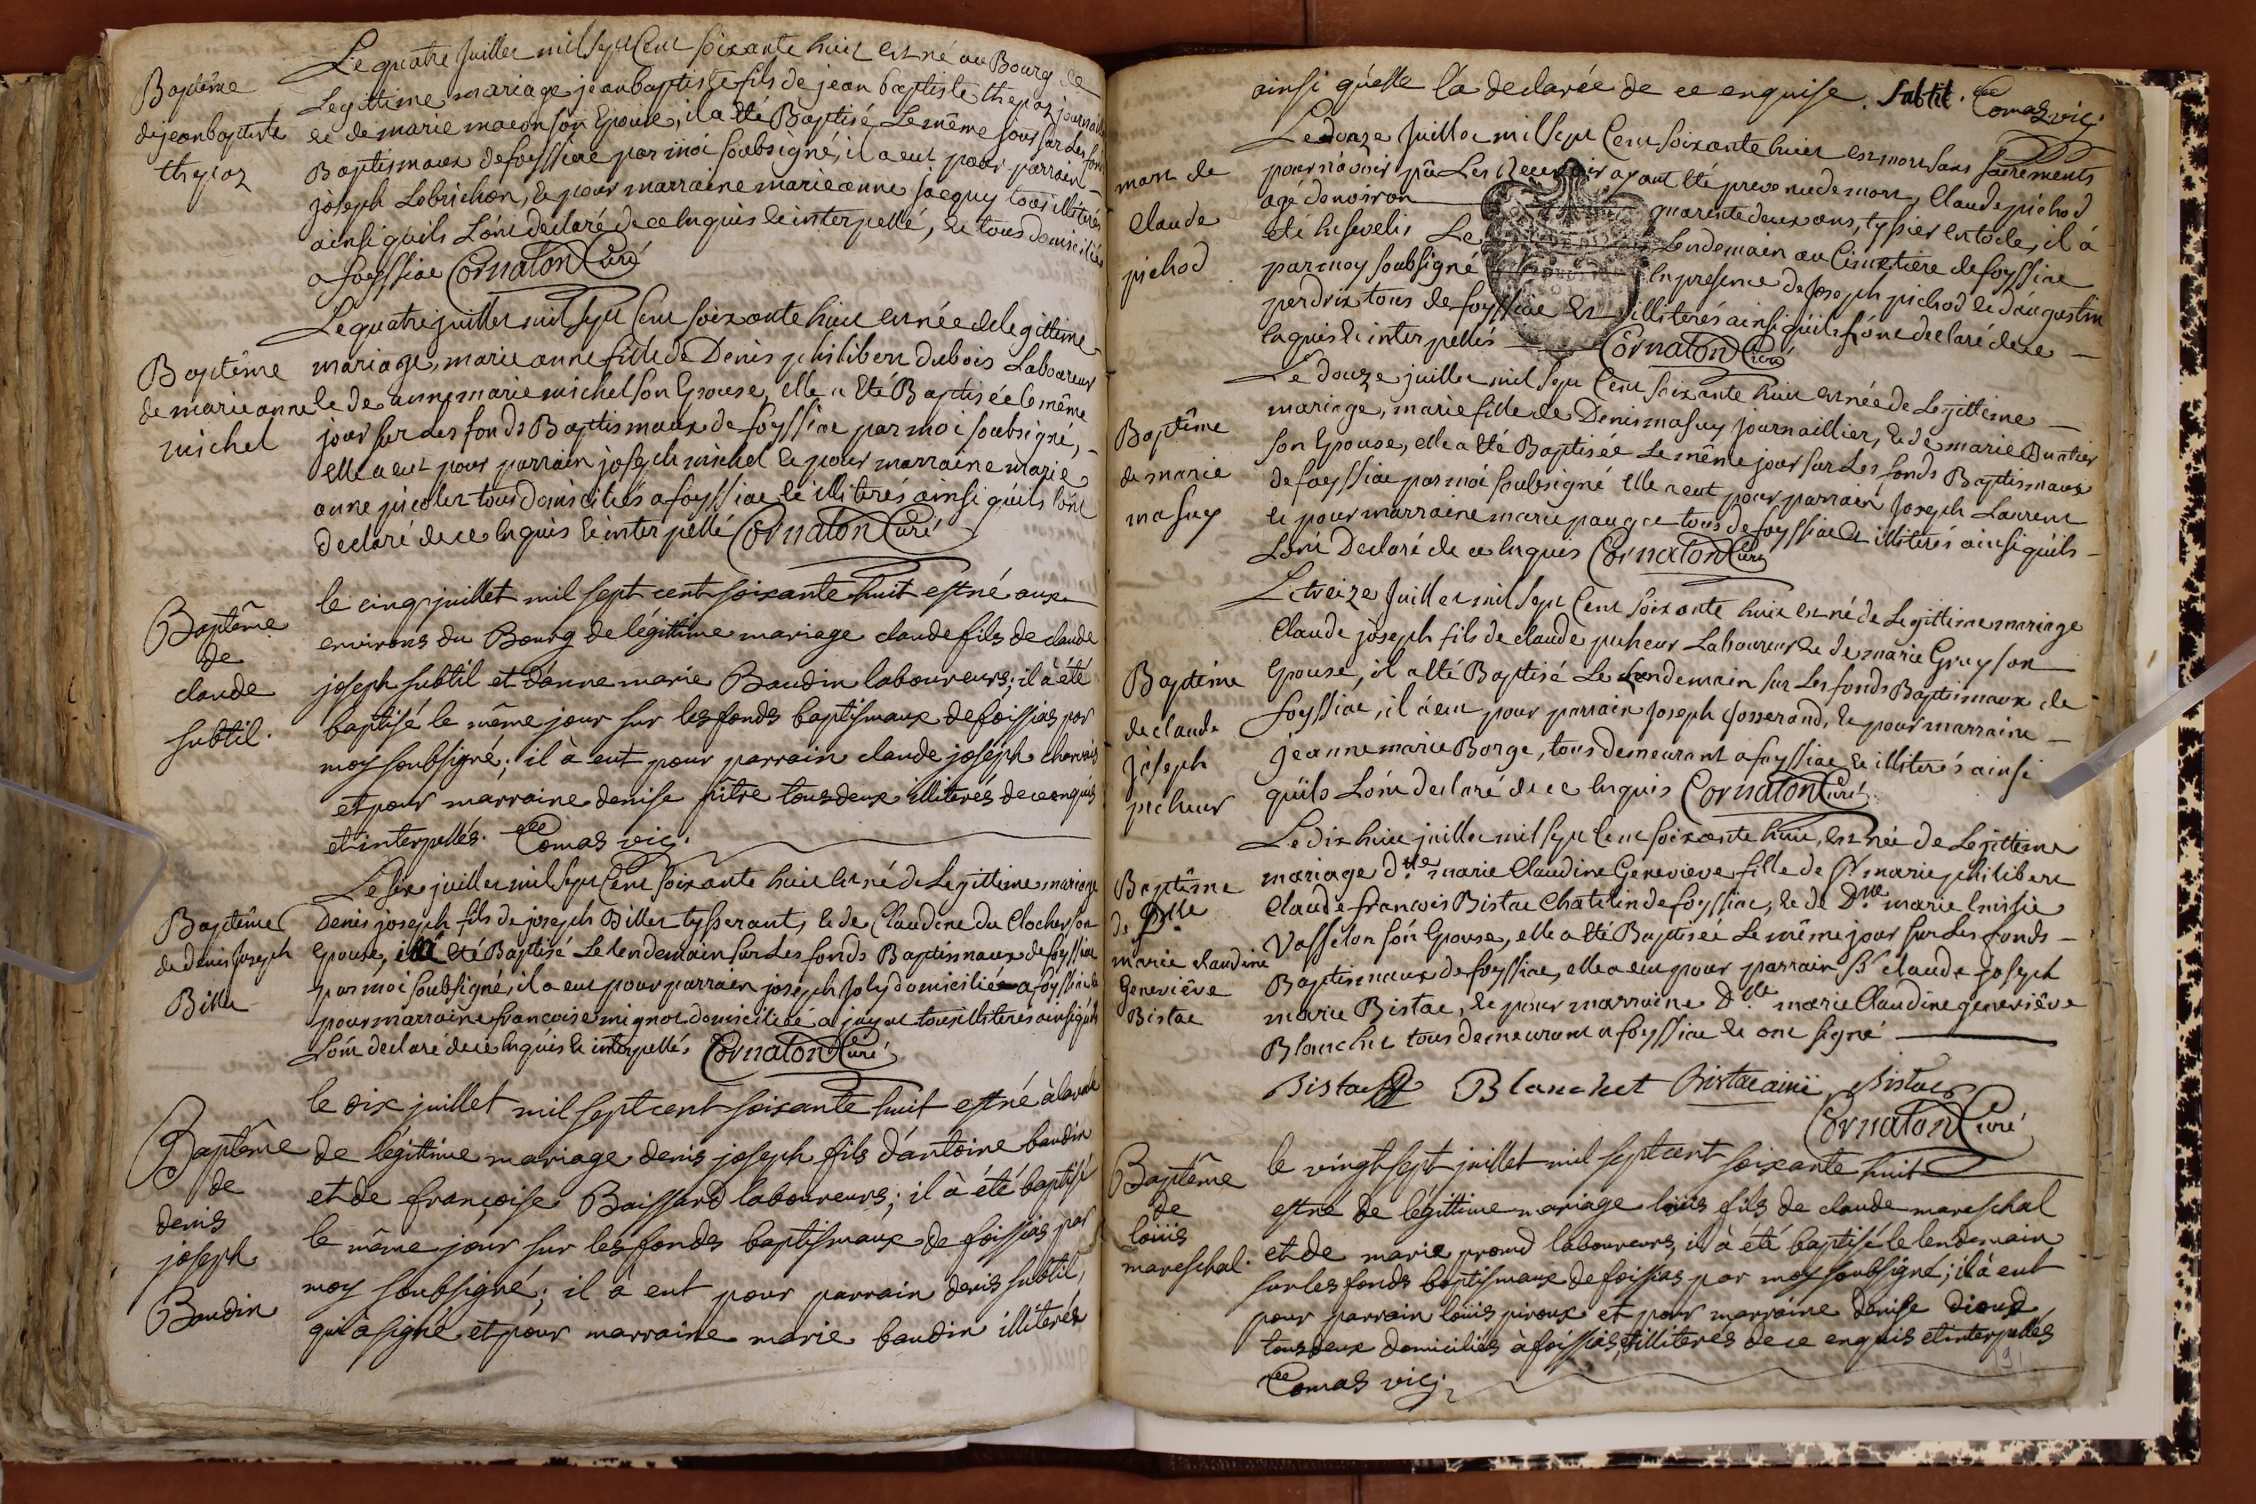 Baptême
de jean baptiste
thepaz
Le quatre Juillet mil sept Cent soixante huit est né au Bourg de
Legittime mariage jean baptiste fils de jean baptiste thepaz journaillier
et de marie macon son Epouse, il a été Baptisé Le même jour sur Les fonds
Baptismaux de foyssiat par moi soubsigné, il a eut pour parrain
joseph Lobrichon, et pour marraine marie anne jacquy tous illiterés
ainsi quils L'ont declaré de ce Enquis et interpellé, et tous domiciliés
a foyssiat Cornaton Curé
Baptême
de marie anne
michel
Le quatre juillet mil sept Cent soixante huit est née de legittime
mariage, marie anne fille de Denis philibert dubois Laboureur
et de anne marie michel son Epouse, elle a été Baptisée le même
jour sur Les fonds Baptismaux de foyssiat par moi soubsigné,
elle a eut pour parrain joseph michel et pour marraine marie
anne picolet tous domiciliés a foyssiat et illiterés ainsi quils l'ont
declaré de ce Enquis et interpellé Cornaton Curé
Baptême
de
claude
subtil.
le cinq juillet mil sept cent soixante huit est né aux
environs du Bourg de légittime mariage claude fils de claude
joseph subtil et d'anne marie Baudin laboureurs; il à été
baptisé le même jour sur les fonds baptismaux de foissias par
moy soubsigné; il à eut pour parrain claude joseph charvais
et pour marraine denise pitre tous deux illiterés de ce enquis
et interpellés. Comas vic.
Baptême
de denis Joseph
Billet
Le six juillet mil sept Cent soixante huit est né de Legittime mariage
Denis joseph fils de joseph Billet tysserant, et de Claudine du Clocher son
Epouse, il a été Baptisé Le lendemain sur Les fonds Baptismaux de foyssiat
par moi soubsigné, il a eut pour parrain joseph Joly domicilié a foyssiat et
pour marraine francoise mignot domiciliée a jayat tous illiterés ainsi quils
L'ont declaré de ce Enquis et interpellés Cornaton Curé
Baptême
de
denis
joseph
Baudin
le dix juillet mil sept cent soixante huit est né à
de légittime mariage denis joseph fils d'antoine baudin
et de françoise Baissard laboureurs; il à été baptisé
le même jour sur les fonds baptismaux de foissias par
moy soubsigné; il à eut pour parrain denis subtil,
qui à signé et pour marraine marie baudin illiterée
ainsi qu'elle l'a declarée de ce enquise. Subtil. Comas vic.
mort de
Claude
pichod
Le douze Juillet mil sept Cent soixante huit est mort sans sacrements
pour n'avoir pû Les Recevoir ayant été prevenu de mort, Claude pichod
agé d'environ quarente deux ans, tyssier en toile, il à
été Ensevelis Le Lendemain au Cimetiere de foyssiat
par moy soubsigné En presence de Joseph pichod et d'augustin
perdrix tous de foyssiat et illiterés ainsi qu'ils L'ont declaré de ce
Enquis et interpellés Cornaton Curé
Baptême
de marie
masuy
Le douze juillet mil sept Cent soixante huit est née de Legittime
mariage, marie fille de Denis masuy journaillier, et de marie Buatier
son Epouse, elle a été Baptisée Le même jour sur Les fonds Baptismaux
de foyssiat par moi soubsigné elle a eut pour parrain Joseph Laurent
et pour marraine marie pauget tous de foyssiat et illiterés ainsi quils
L'ont Declaré de ce Enquis Cornaton Curé
Baptême
de claude
joseph
pecheur
Le treize Juillet mil sept Cent soixante huit est né de Legittime mariage
Claude joseph fils de claude pecheur Laboureur et de marie Gruy son
Epouse, il a été Baptisé Le Lendemain sur Les fonds Baptismaux de
foyssiat, il a eut pour parrain Joseph Josserand, et pour marraine
Jeanne marie Borge, tous demeurant a foyssiat et illiterés ainsi
quils L'ont declaré de ce Enquis Cornaton Curé
Baptême
de Dlle
marie claudine
Geneviêve
Bistac
Le dix huit juillet mil sept Cent soixante huit, est née de Legittime
mariage dlle marie Claudine Genevieve fille de Sr marie philibert
Claude francois Bistac Chatelin de foyssiat, et de Dme marie
Vasselon son Epouse, elle a été Baptisée Le même jour sur Les fonds
Baptismaux de foyssiat, elle a eut pour parrain Sr claude joseph
marie Bistac, et pour marraine Dlle marie Claudine geneviêve
Blanchet tous demeurant a foyssiat et ont signé
Bistac Blanchet Bistac ainé Bistac
Cornaton Curé
Baptême
de
loüis
mareschal.
le vingt sept juillet mil sept cent soixante huit
est né de légittime mariage loüis fils de claude mareschal
et de marie promd laboureurs, il à été baptisé le lendemain
sur les fonds baptismaux de foissias par moy soubsigné; il à eut
pour parrain loüis piroux et pour marraine denise dioud
tous deux domiciliés à foissias, et illiterés de ce enquis et interpellés
Comas vic.